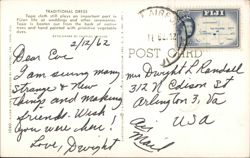 TRADITIONAL DRESS
Tapa cloth still plays an important part in
Fijian life at weddings and other ceremonies.
Tapa is beaten out from the bark of native
and hand painted with primitive vegetable
dyes.
3/12/62
Dear Eve
I am seeing many
strange & new
things and making
friends. Wish
you were here!
Love, Dwight
FIJI
POST CARD
Mrs Dwight L Randall
312 N Edison St
Arlington 3, Va
USA
Air
Mail